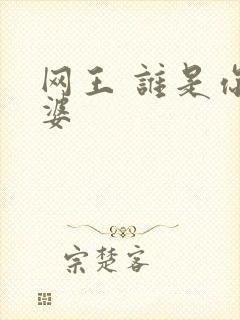 网王 誰是你
婆
宗楚客